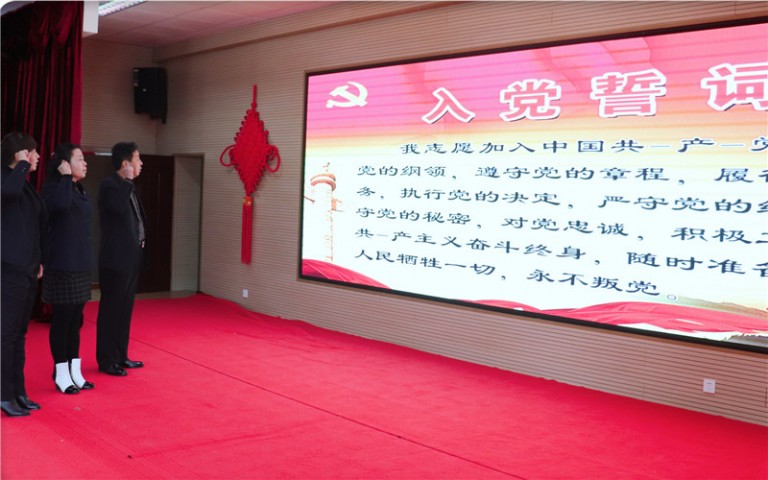 入党誓词
我志愿加入中国共-产-党
党的纲领，遵守党的章程，履行
务，执行党的决定，严守党的纪
守党的秘密，对党忠诚，积极工
共-产主义奋斗终身，随时准备
人民牺牲一切，永不叛党。